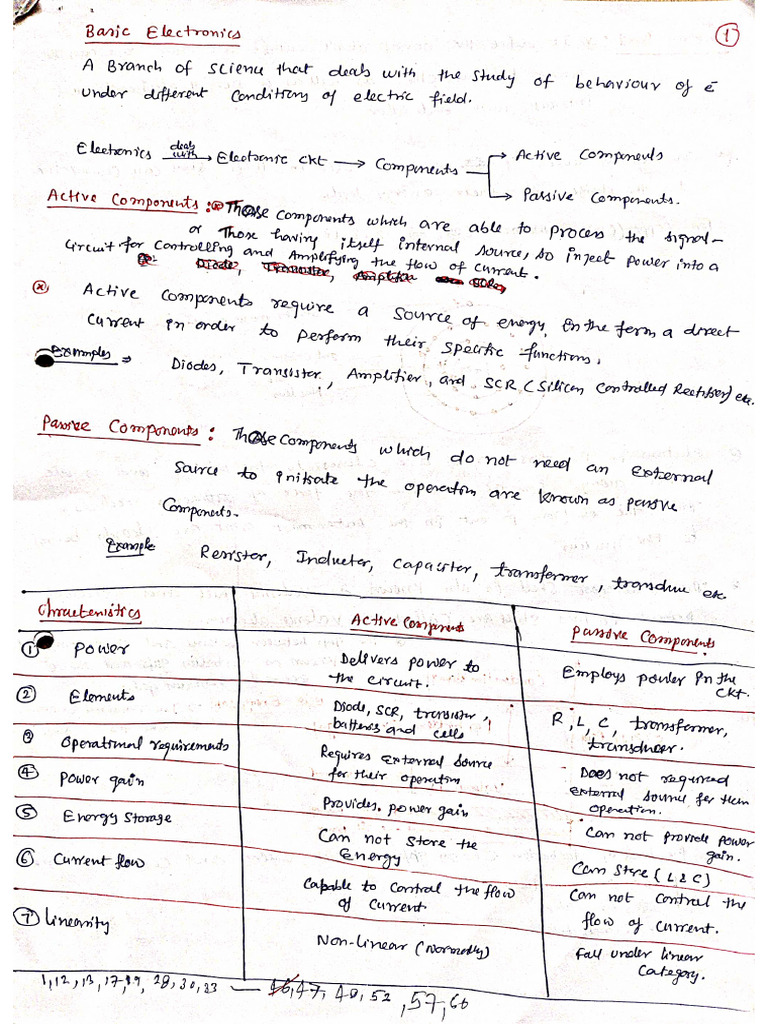 Basic Electronics
1
A Branch of science that deals with the study of behaviour of ē
under different conditions of electric field.
Electronics deals with → Electronic ckt → Components → Active Components
→ Passive Components.
Active Components : Those components which are able to process the signal-
or Those having itself internal source, so inject power into a
circuit for controlling and Amplifying the flow of current.
Active components require a source of energy, in the form a direct
current in order to perform their specific functions.
Examples ⇒ Diodes, Transistor, Amplifier, and SCR (Silicon Controlled Rectifier) etc.
Passive Components : Those components which do not need an external
source to initiate the operation are known as passive
components.
Example Resistor, Inductor, Capacitor, transformer, transducer etc.
Chracteristics Active Components Passive Components
① Power Delivers power to Employs power in the
the circuit. ckt.
② Elements Diode, SCR, transistor, R, L, C, transformer,
batteries and cells transducer.
③ Operational requirements Requires external source Does not required
for their operation external source for them
operation.
④ Power gain Provides power gain Can not provide power
gain.
⑤ Energy Storage Can not store the Can store (L & C)
Energy
⑥ Current flow Capable to control the flow Can not control the
of current flow of current.
⑦ linearity Non-linear (Normally) Fall under linear
category.
1, 12, 13, 17, 19, 28, 30, 33 — 46, 47, 48, 52, 57, 60